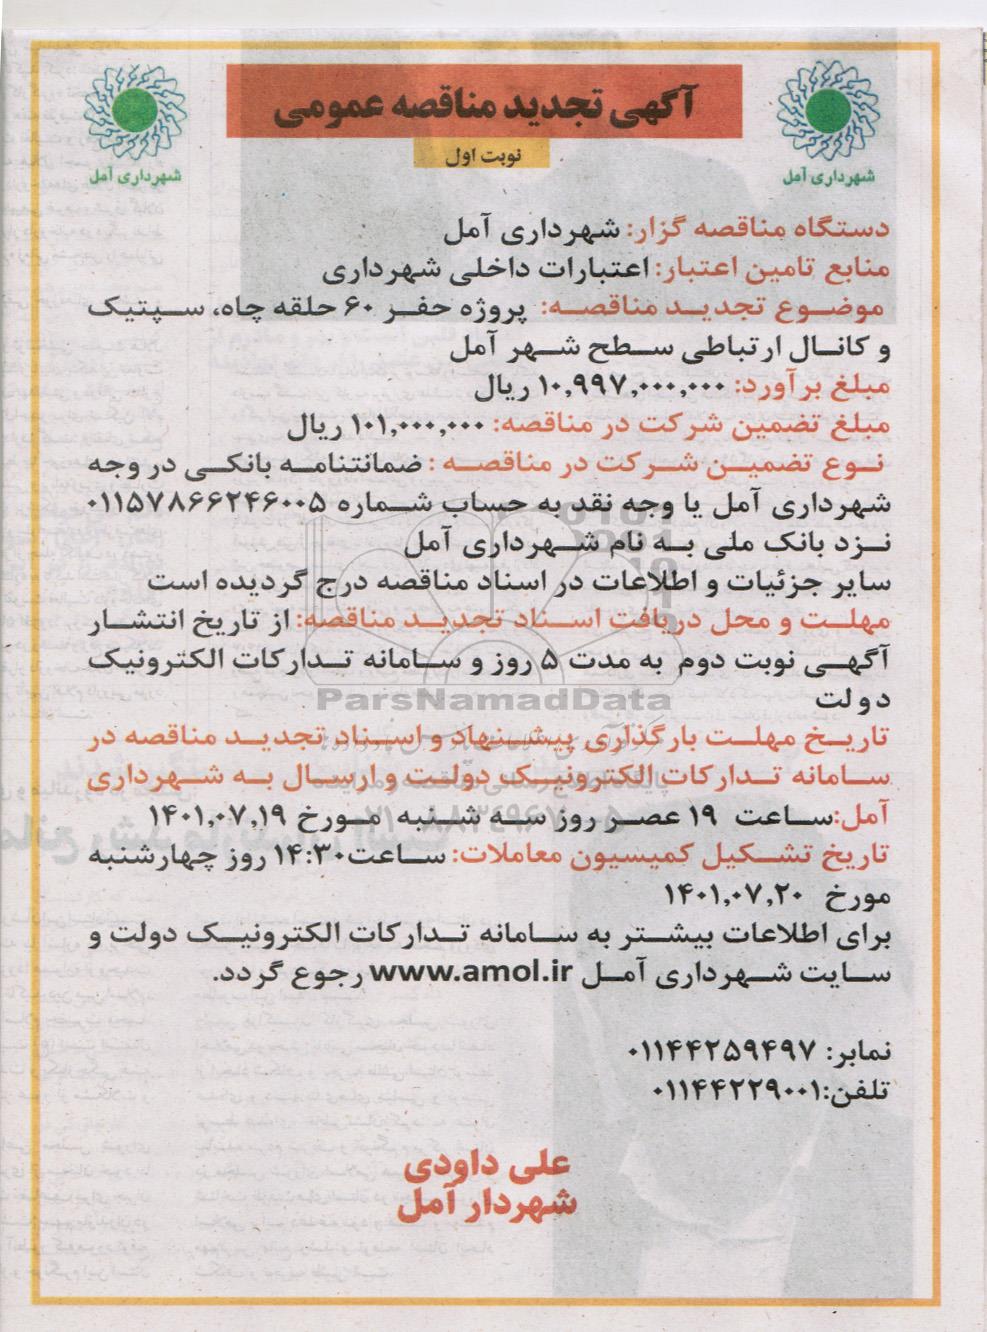 آگهی تجدید مناقصه عمومی
نوبت اول
شهرداری آمل
شهرداری آمل
دستگاه مناقصه گزار: شهرداری آمل
منابع تامین اعتبار: اعتبارات داخلی شهرداری
موضوع تجدید مناقصه: پروژه حفر ۶۰ حلقه چاه، سپتیک
و کانال ارتباطی سطح شهر آمل
مبلغ برآورد: ۱۰,۹۹۷,۰۰۰,۰۰۰ ریال
مبلغ تضمین شرکت در مناقصه: ۱۰۱,۰۰۰,۰۰۰ ریال
نوع تضمین شرکت در مناقصه : ضمانتنامه بانکی در وجه
شهرداری آمل یا وجه نقد به حساب شماره ۰۱۱۵۷۸۶۶۲۴۶۰۰۵
نزد بانک ملی به نام شهرداری آمل
سایر جزئیات و اطلاعات در اسناد مناقصه درج گردیده است
مهلت و محل دریافت اسناد تجدید مناقصه: از تاریخ انتشار
آگهی نوبت دوم به مدت ۵ روز و سامانه تدارکات الکترونیک
دولت
ParsNamadData
تاریخ مهلت بارگذاری پیشنهاد و اسناد تجدید مناقصه در
سامانه تدارکات الکترونیک دولت و ارسال به شهرداری
آمل: ساعت ۱۹ عصر روز سه شنبه مورخ ۱۴۰۱,۰۷,۱۹
تاریخ تشکیل کمیسیون معاملات: ساعت ۱۴:۳۰ روز چهارشنبه
مورخ ۱۴۰۱,۰۷,۲۰
برای اطلاعات بیشتر به سامانه تدارکات الکترونیک دولت و
سایت شهرداری آمل www.amol.ir رجوع گردد.
نمابر: ۰۱۱۴۴۲۵۹۴۹۷
تلفن: ۰۱۱۴۴۲۲۹۰۰۱
علی داودی
شهردار آمل